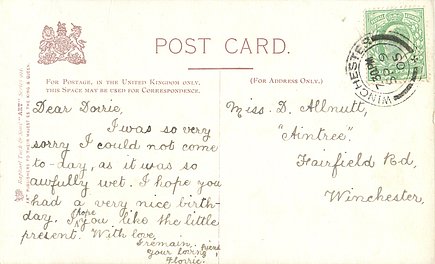 POST CARD.
FOR POSTAGE, IN THE UNITED KINGDOM ONLY,
THIS SPACE MAY BE USED FOR CORRESPONDENCE.
(FOR ADDRESS ONLY.)
WINCHESTER
SP 6
05
Dear Dorrie,
I was so very
sorry I could not come
to-day, as it was so
awfully wet. I hope you
had a very nice birth-
day. I hope you like the little
present. With love
I remain
your loving
Florrie.
Miss. D. Allnutt,
"Aintree".
Fairfield Rd,
Winchester.